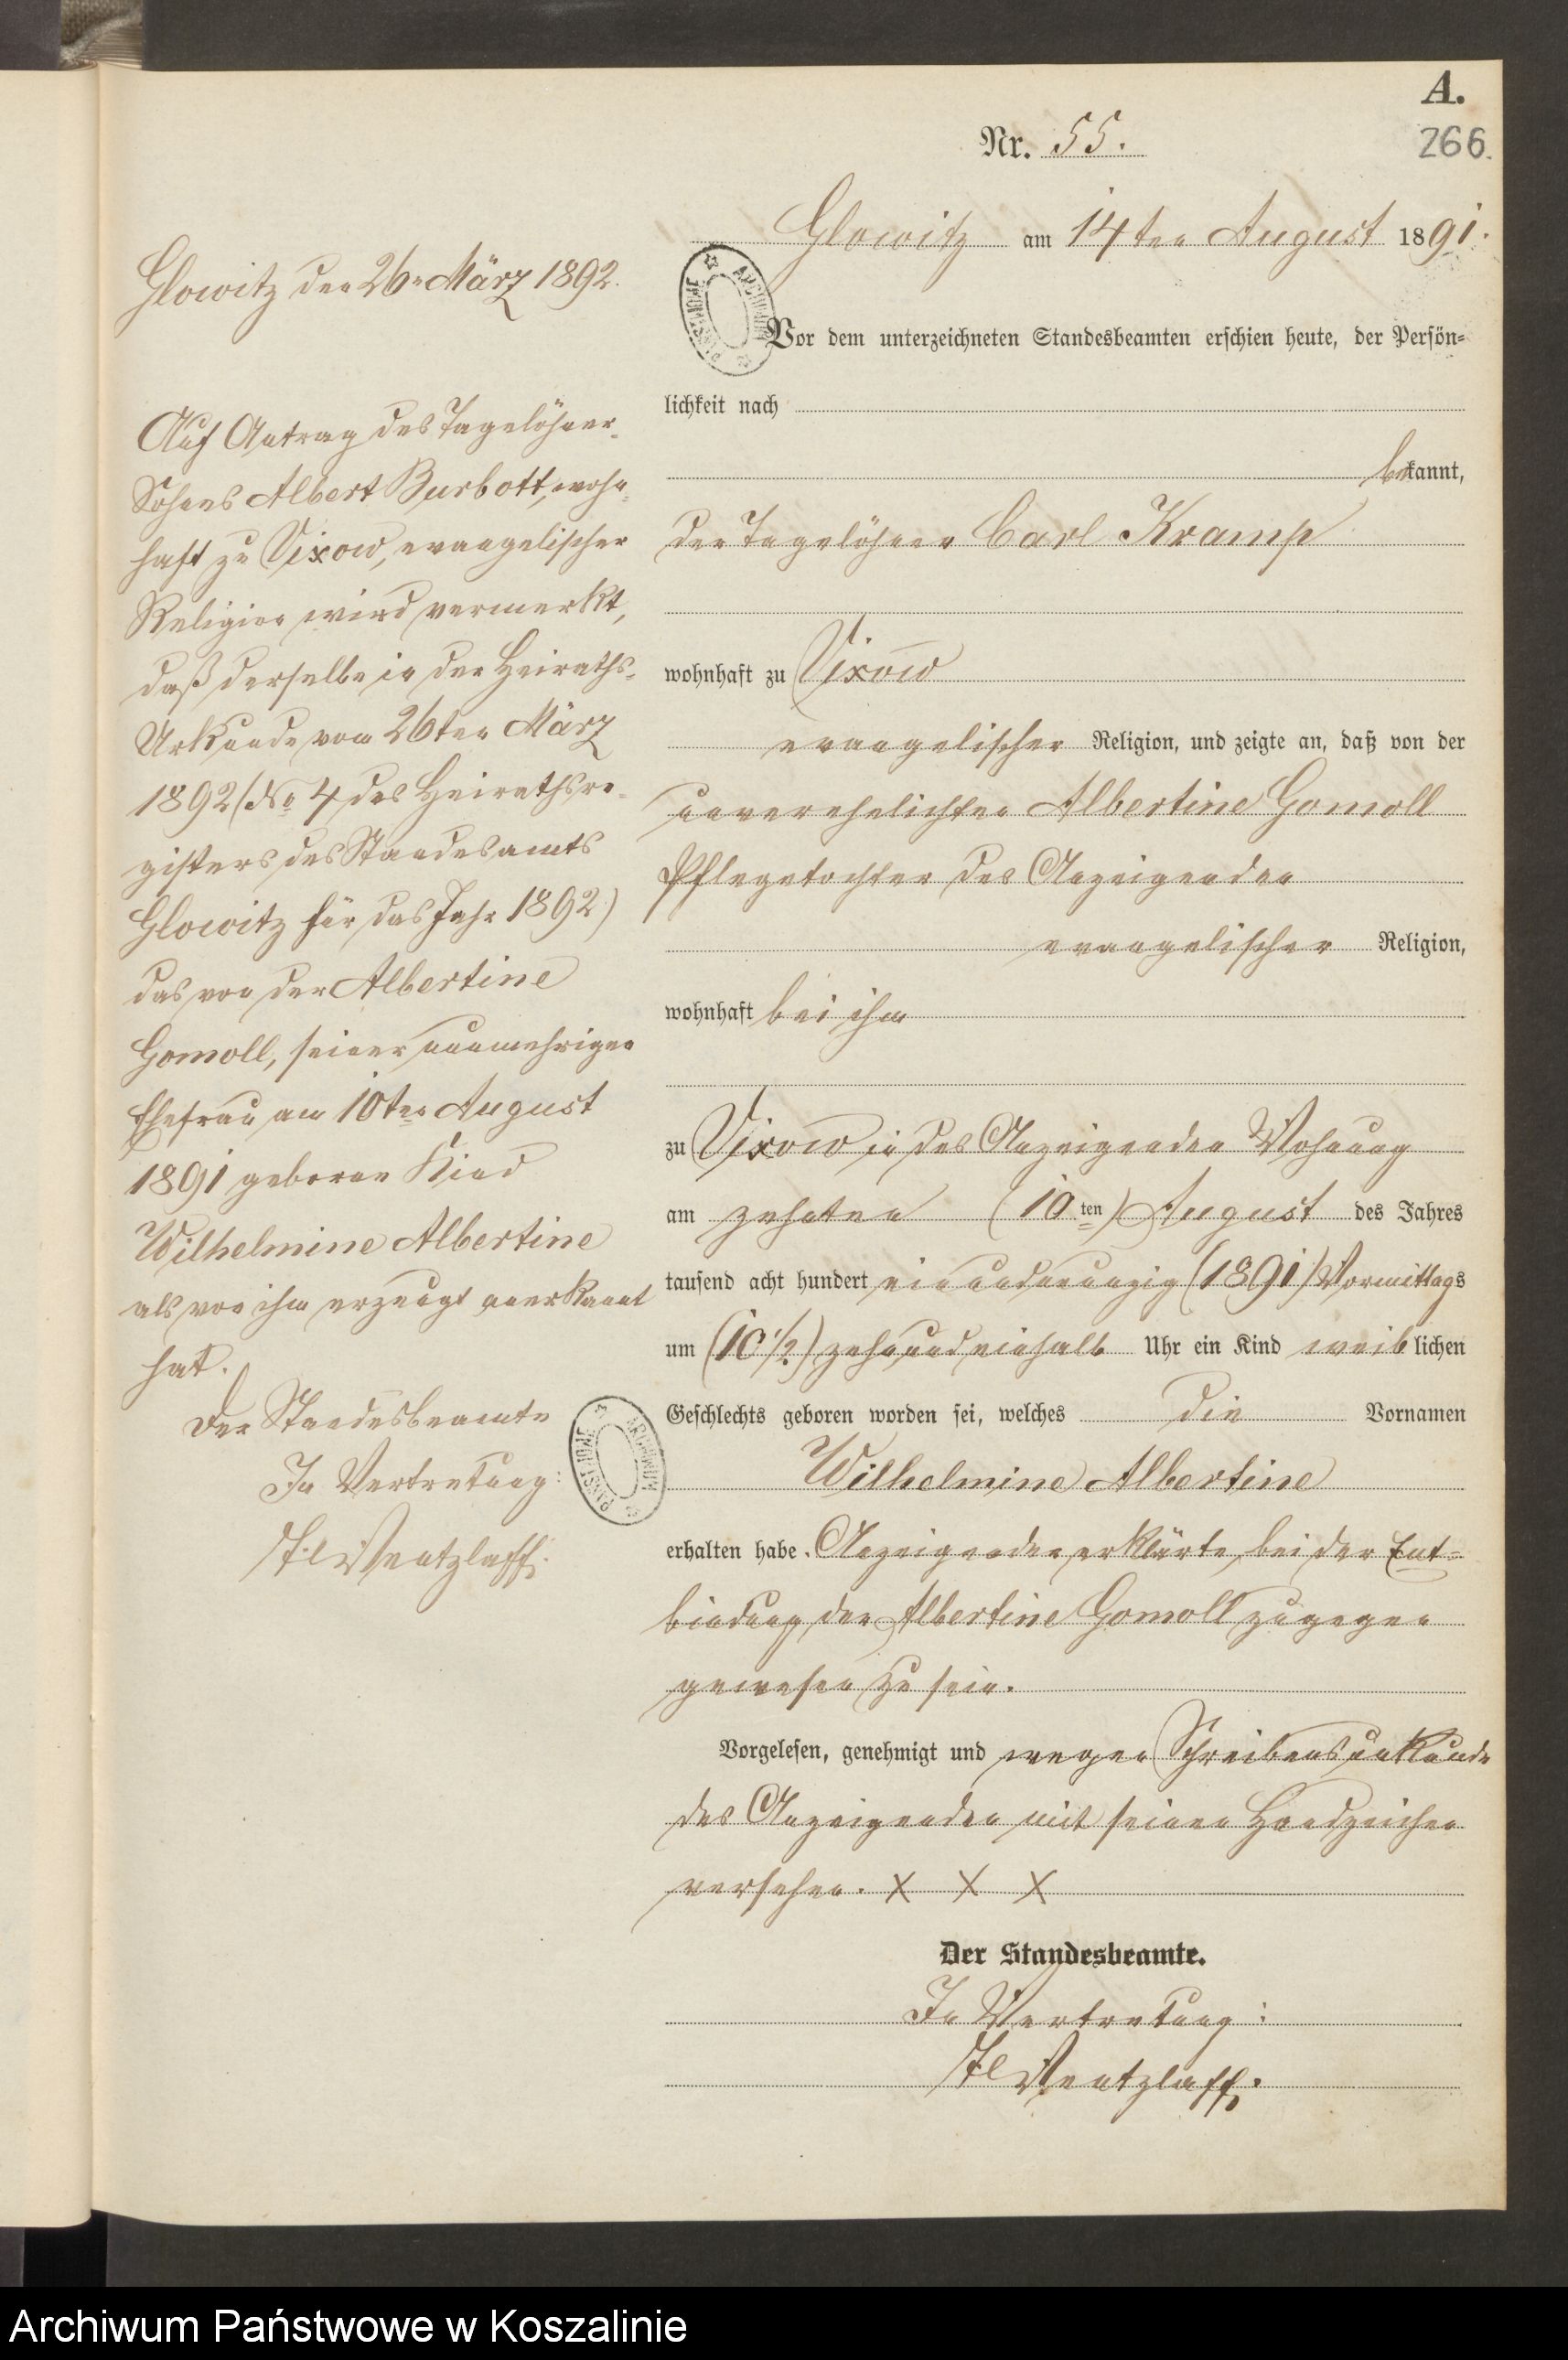 A.
266.
Nr. 55.
Glowitz am 14ten August 1891.
Vor dem unterzeichneten Standesbeamten erschien heute, der Persön-
lichkeit nach
bekannt,
der Tagelöhner Carl Kramp
wohnhaft zu Vixow
evangelischer Religion, und zeigte an, daß von der
unverehelichten Albertine Gomoll
Pflegetochter des Anzeigenden
evangelischer Religion,
wohnhaft bei ihm
zu Vixow in des Anzeigenden Wohnung
am zehnten (10ten) August des Jahres
tausend acht hundert einundneunzig (1891) Vormittags
um (10 1/2) zehnundeinhalb Uhr ein Kind weiblichen
Geschlechts geboren worden sei, welches die Vornamen
Wilhelmine Albertine
erhalten habe. Anzeigender erklärte, bei der Ent-
bindung der Albertine Gomoll zugegen
gewesen zu sein.
Vorgelesen, genehmigt und wegen Schreibensunkunde
des Anzeigenden mit seinen Handzeichen
versehen. X X X
Der Standesbeamte.
In Vertretung:
Wentzlaff.
Glowitz den 26n März 1892.
Auf Antrag des Tagelöhner-
Sohnes Albert Burbott, wohn-
haft zu Vixow, evangelischer
Religion wird vermerkt,
daß derselbe in der Heiraths-
Urkunde vom 26ten März
1892 (No 4 des Heirathsre-
gisters des Standesamts
Glowitz für das Jahr 1892)
das von der Albertine
Gomoll, seiner nunmehrigen
Ehefrau am 10ten August
1891 geborene Kind
Wilhelmine Albertine
als von ihm erzeugt anerkannt
hat.
Der Standesbeamte
In Vertretung:
Wentzlaff.
Archiwum Państwowe w Koszalinie